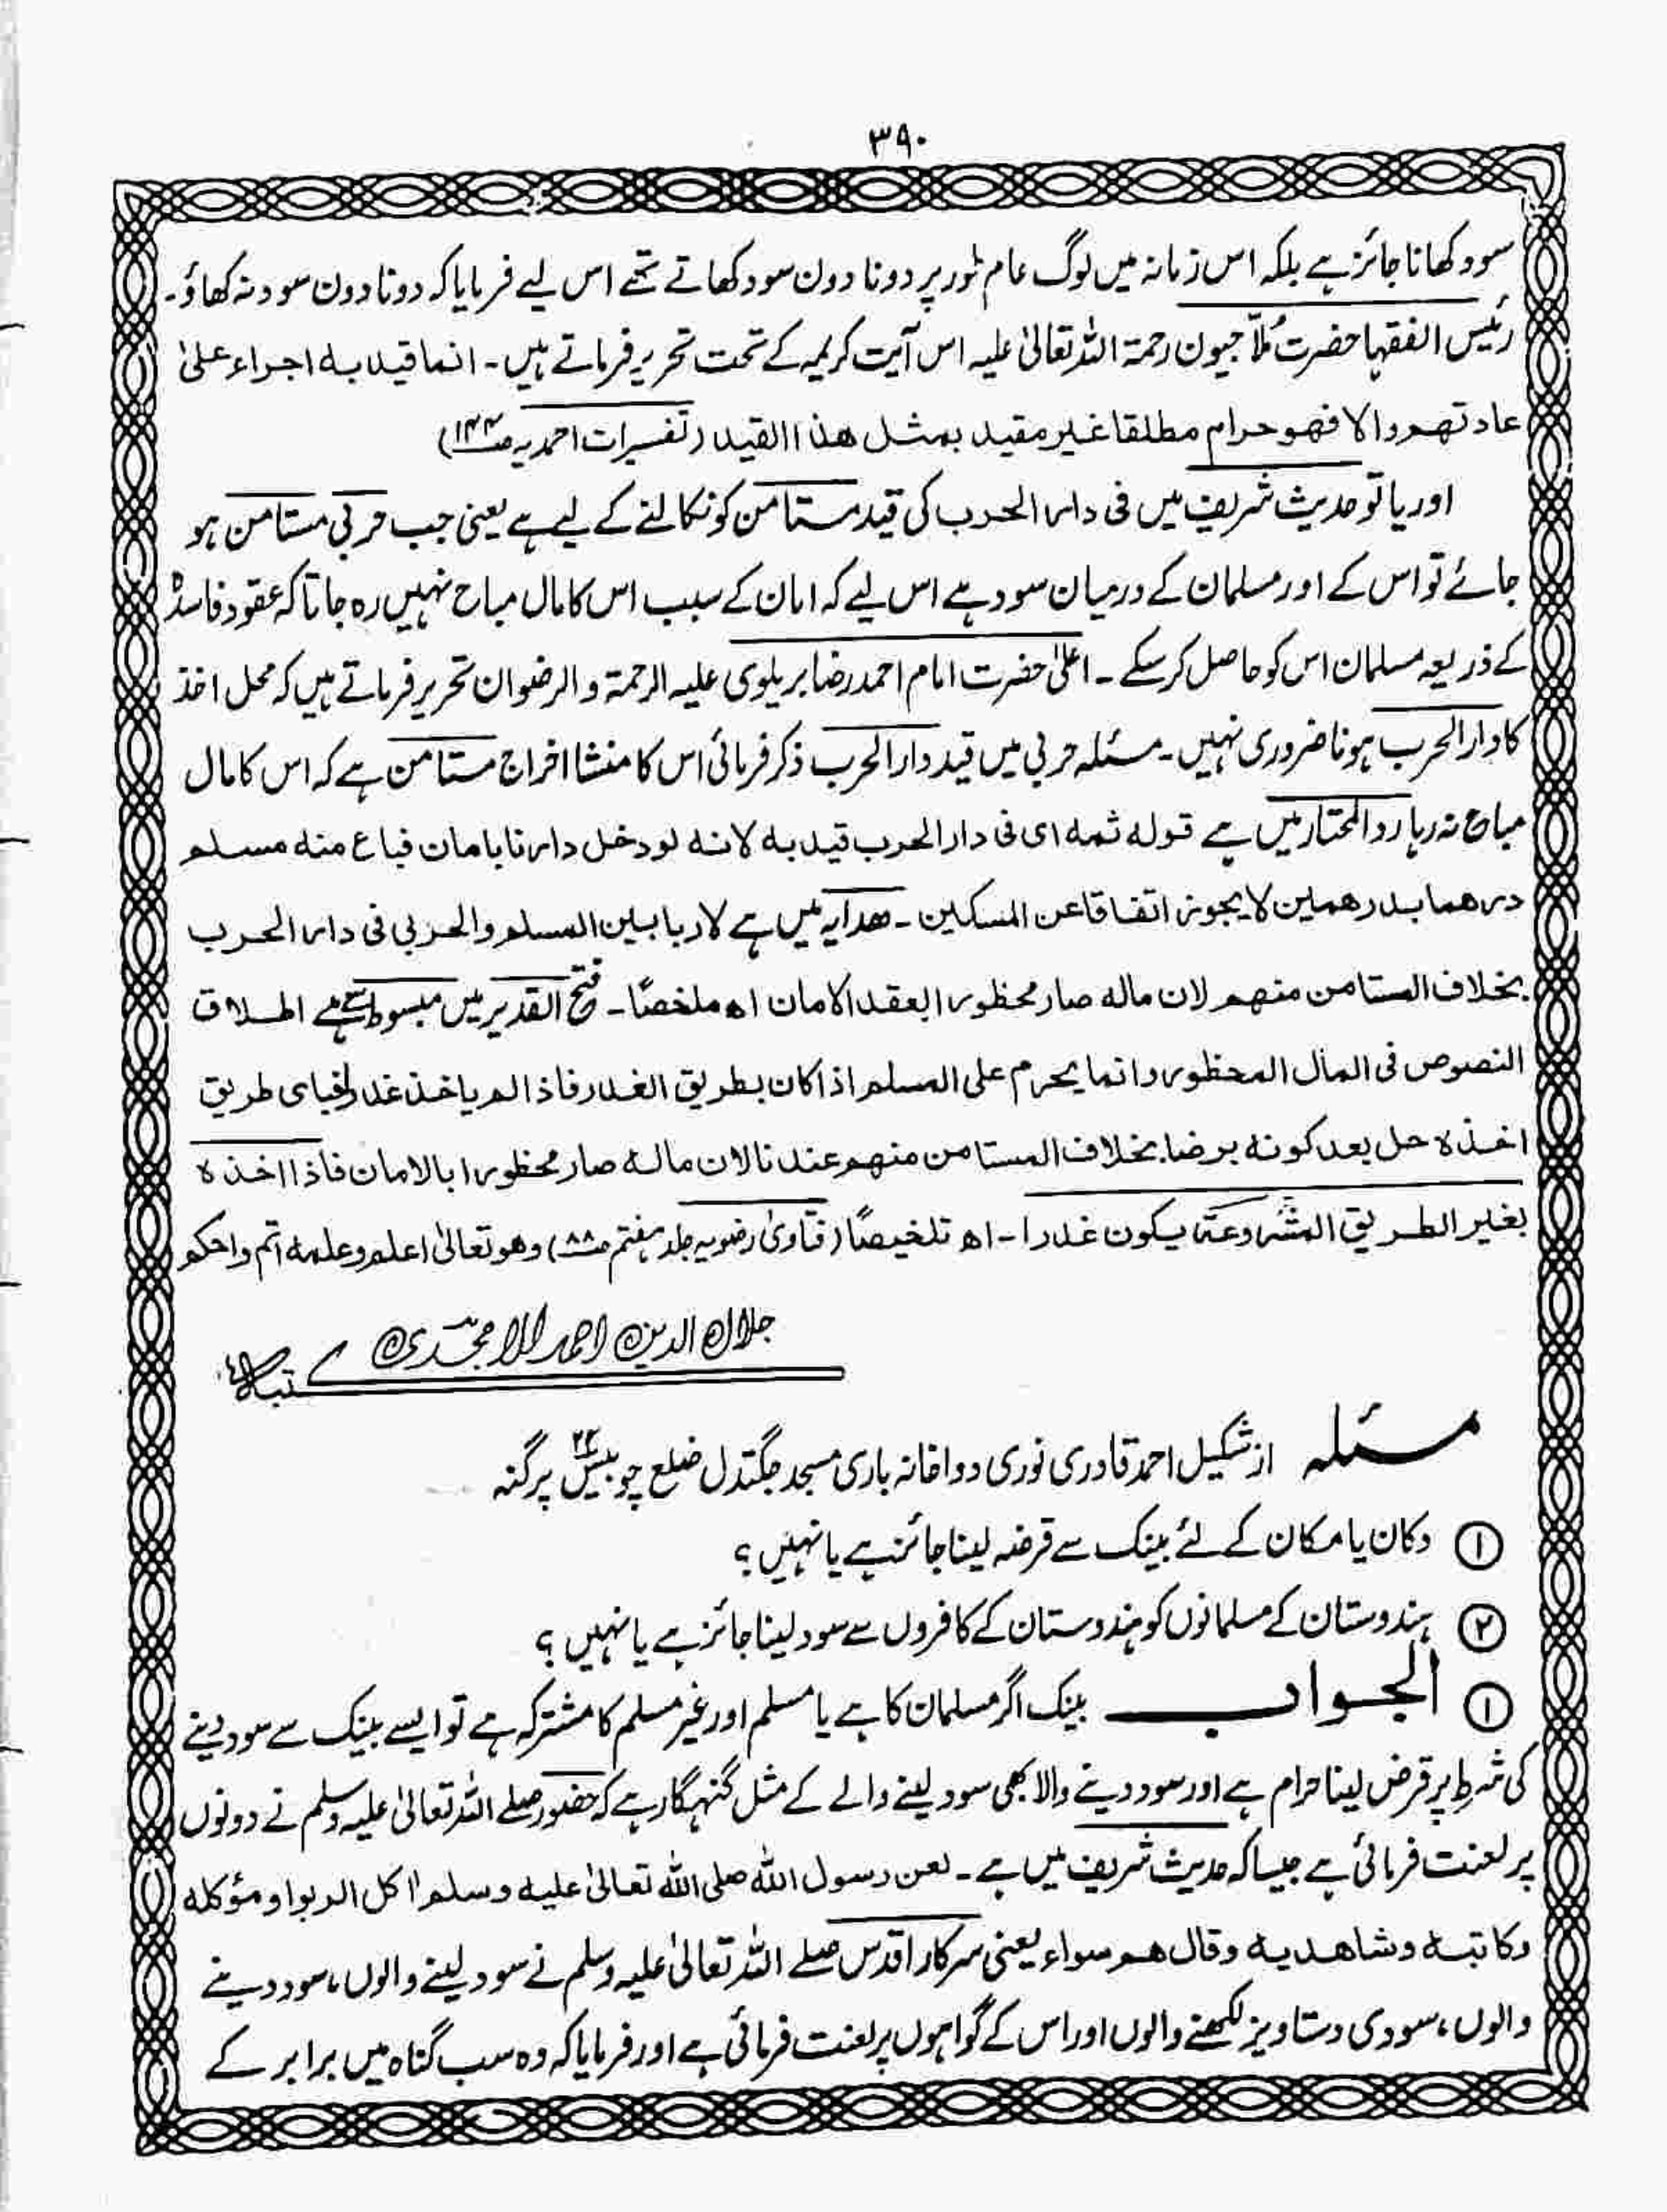 ۳۹۰
سود کھانا جائز ہے بلکہ اس زمانہ میں لوگ عام طور پر دونا دون سود کھاتے تھے اس لیے فرمایا کہ دونا دون سود نہ کھاؤ۔
رئیس الفقہا حضرت مُلّا جیون رحمۃ اللہ تعالیٰ علیہ اس آیت کریمہ کے تحت تحریر فرماتے ہیں۔ انما قید بہ اجراء علیٰ
عادتھم والا فھو حرام مطلقا غیر مقید بمثل ھذا القید (تفسیرات احمدیہ ص۱۴۴)
اور یا تو حدیث شریف میں فی دار الحرب کی قید مستامن کو نکالنے کے لیے ہے یعنی جب حربی مستامن ہو
جائے تو اس کے اور مسلمان کے درمیان سود ہے اس لیے کہ امان کے سبب اس کا مال مباح نہیں رہ جاتا کہ عقود فاسدہ
کے ذریعہ مسلمان اس کو حاصل کر سکے ۔ اعلیٰ حضرت امام احمد رضا بریلوی علیہ الرحمۃ و الرضوان تحریر فرماتے ہیں کہ محل اخذ
کا دار الحرب ہونا ضروری نہیں۔ مسئلہ حربی میں قید دار الحرب ذکر فرمائی اس کا منشا اخراج مستامن ہے کہ اس کا مال
مباح نہ رہا رد المحتار میں ہے قولہ ثمہ ای فی دار الحرب قید بہ لانہ لو دخل دارنا بامان فباع منہ مسلم
درھما بدرھمین لا یجوز اتفاقا عن المسکین ۔ ھدایہ میں ہے لا ربا بین المسلم والحربی فی دار الحرب
بخلاف المستامن منھم لان مالہ صار محظورا بعقد الامان اھ ملخصًا ۔ فتح القدیر میں مبسوط سے ہے اطلاق
النصوص فی المال المحظور وانما یحرم علی المسلم اذا کان بطریق الغدر فاذا لم یاخذ غدرا فبای طریق
اخذہ حل بعد کونہ برضا بخلاف المستامن منھم عندنا لان مالہ صار محظورا بالامان فاذا اخذہ
بغیر الطریق المشروعۃ یکون غدرا ۔ اھ تلخیصًا (فتاویٰ رضویہ جلد ہفتم ص۸۸) وھو تعالیٰ اعلم وعلمہ اتم واحکم
جلال الدین احمد الامجدی
کتبہ
مسئلہ از شکیل احمد قادری نوری دواخانہ باری مسجد جگتدل ضلع چوبیس۲۴ پرگنہ
① دکان یا مکان کے لئے بینک سے قرضہ لینا جائز ہے یا نہیں؟
② ہندوستان کے مسلمانوں کو ہندوستان کے کافروں سے سود لینا جائز ہے یا نہیں؟
① الجواب بینک اگر مسلمان کا ہے یا مسلم اور غیر مسلم کا مشترکہ ہے تو ایسے بینک سے سود دینے
کی شرط پر قرض لینا حرام ہے اور سود دینے والا بھی سود لینے والے کے مثل گنہگار ہے کہ حضور صلے اللہ تعالیٰ علیہ وسلم نے دونوں
پر لعنت فرمائی ہے جیسا کہ حدیث شریف میں ہے ۔ لعن رسول اللہ صلی اللہ تعالیٰ علیہ وسلم اٰکل الربوا و مؤکلہ
وکاتبہ وشاھدیہ وقال ھم سواء یعنی سرکار اقدس صلے اللہ تعالیٰ علیہ وسلم نے سود لینے والوں، سود دینے
والوں، سودی دستاویز لکھنے والوں اور اس کے گواہوں پر لعنت فرمائی ہے اور فرمایا کہ وہ سب گناہ میں برابر کے